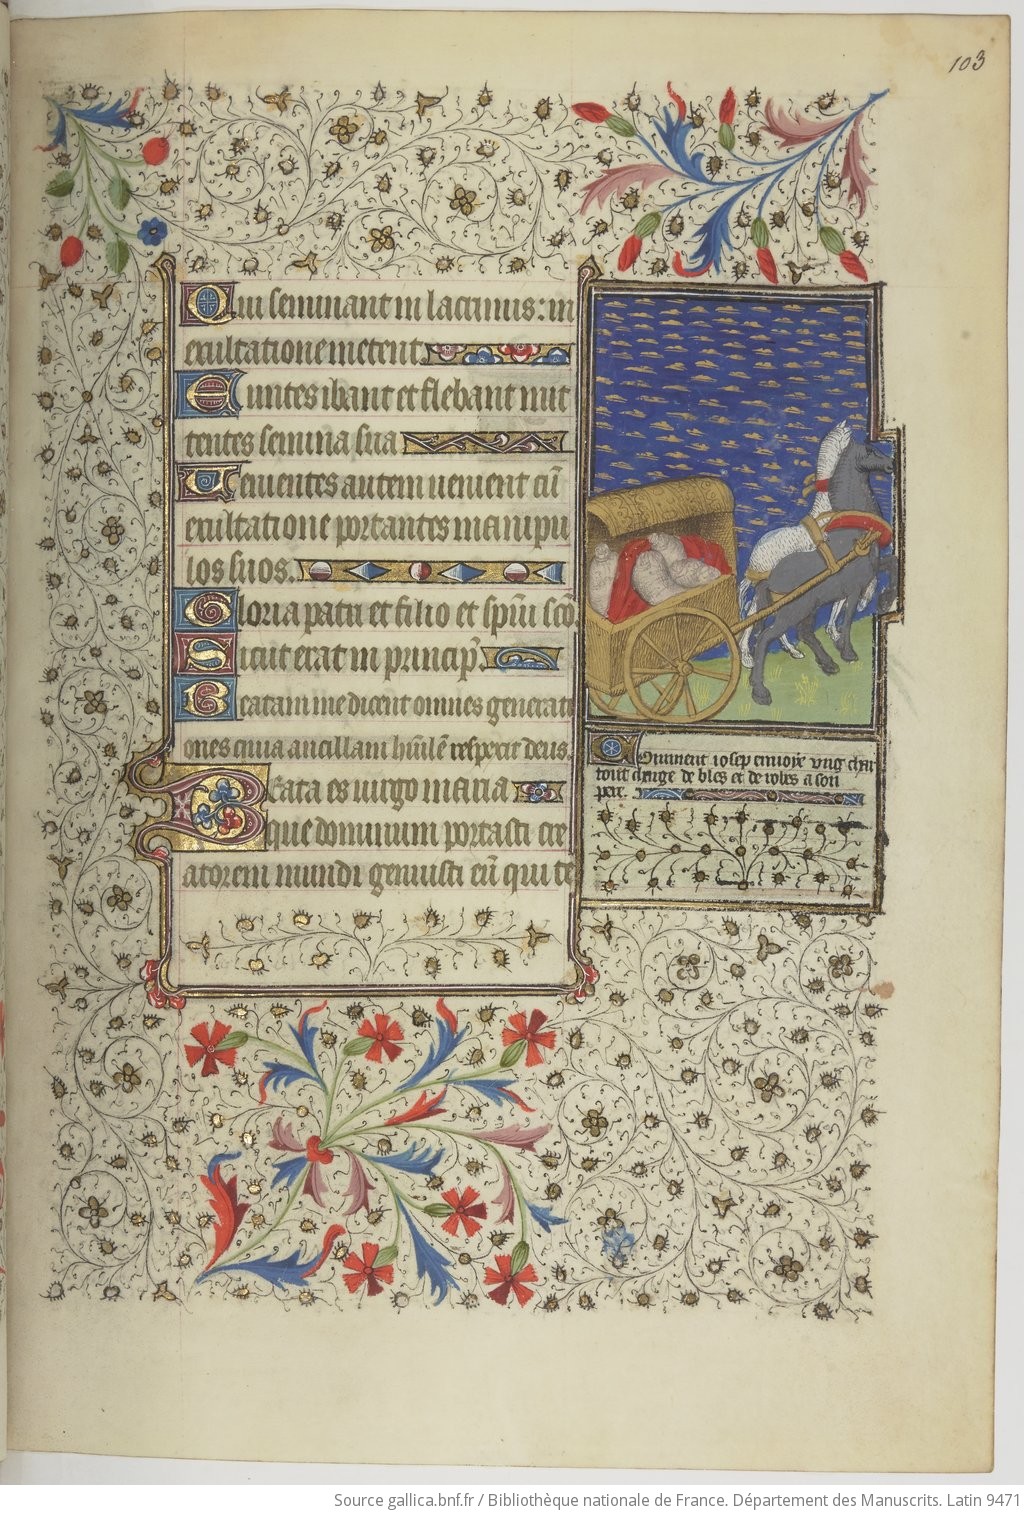 103
Qui seminant in lacrimis: in
exultatione metent.
Euntes ibant et flebant mit
tentes semina sua
Uenientes autem uenient cū
exultatione portantes manipu
los suos.
Gloria patri et filio et spūi scō
Sicut erat in princip̄
Beatam me dicent omnes generati
ones quia ancillam humilē respexit deus.
Beata es uirgo maria
que dominum portasti cre
atorem mundi genuisti eū qui te
Comment iosep enuoye ung char
tout charge de bles et de robes a son
pere.
Source gallica.bnf.fr / Bibliothèque nationale de France. Département des Manuscrits. Latin 9471